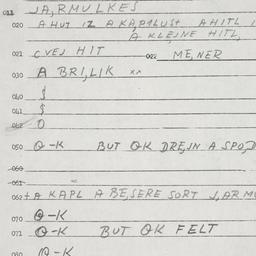 011 JA,RMULKES
020 A HUT IZ A KAPƗLUSH A HITL
A KLEJNE HITL,
021 CVEJ HIT 022 ME,NER
030 A BRI,LIK xx
040 {
041 {
042 0
050 Q-K BUT QK DRE,JN A SPO,D
060
061
062 + A KAPL A BE,SERE SORT J,ARMU
070 Q-K
071 Q-K BUT QK FELT
080 Q-K